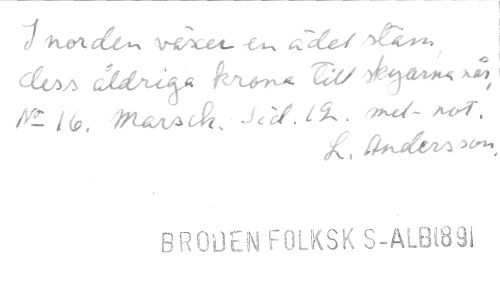 I norden växer en ädel stam,
dess åldriga krona till skyarna når,
No 16. Marsch. Sid. 12. mel-not.
L. Andersson.
BRODEN FOLKSK S-ALB1891